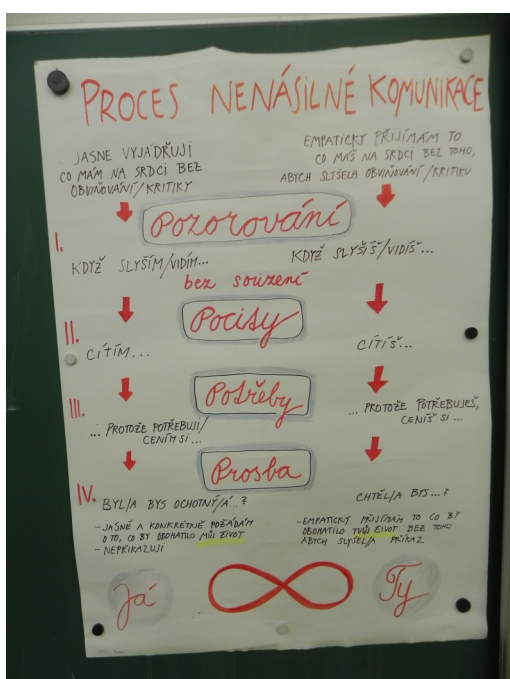 PROCES NENÁSILNÉ KOMUNIKACE
JASNE VYJADŘUJI
CO MÁM NA SRDCI BEZ
OBVIŇOVÁNÍ/KRITIKY
EMPATICKY PŘIJÍMÁM TO
CO MÁŠ NA SRDCI BEZ TOHO,
ABYCH SLYŠELA OBVIŇOVÁNÍ/KRITIKU
Pozorování
I.
KDYŽ SLYŠÍM/VIDÍM...
KDYŽ SLYŠÍŠ/VIDÍŠ...
bez souzení
Pocity
II.
CÍTÍM...
CÍTÍŠ...
Potřeby
III.
... PROTOŽE POTŘEBUJI/
CENÍM SI...
... PROTOŽE POTŘEBUJEŠ,
CENÍŠ SI...
Prosba
IV.
BYL/A BYS OCHOTNÝ/Á...?
- JASNĚ A KONKRÉTNĚ POŽÁDÁM
O TO, CO BY OBOHATILO MŮJ ŽIVOT
- NEPŘIKAZUJI
CHTĚL/A BYS...?
- EMPATICKY PŘIJÍMÁM TO CO BY
OBOHATILO TVŮJ ŽIVOT BEZ TOHO
ABYCH SLYŠEL/A PŘÍKAZ
Já
Ty